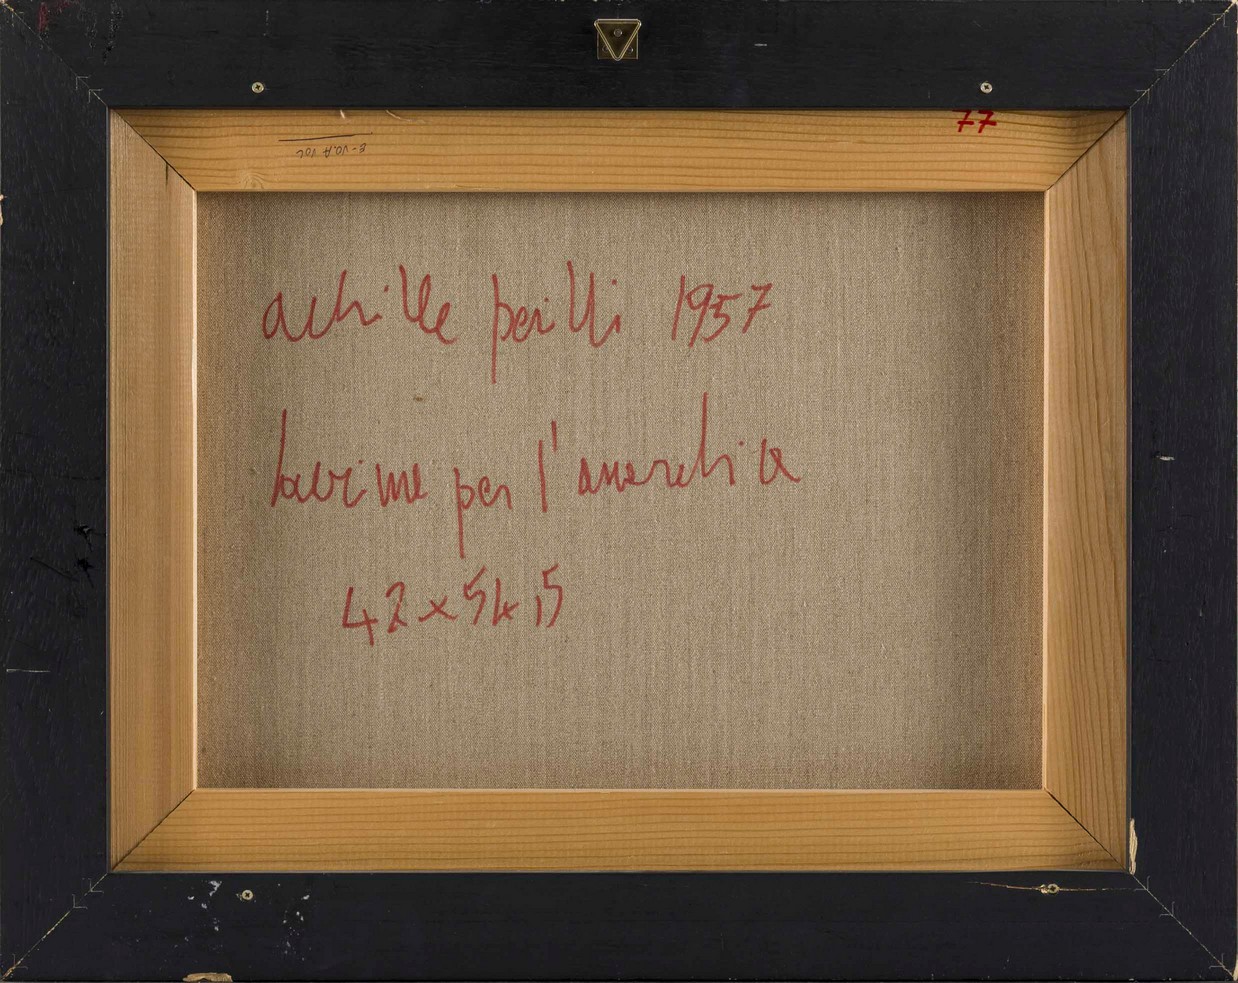 77
achille perilli 1957
lacrime per l'anarchia
42x54,5